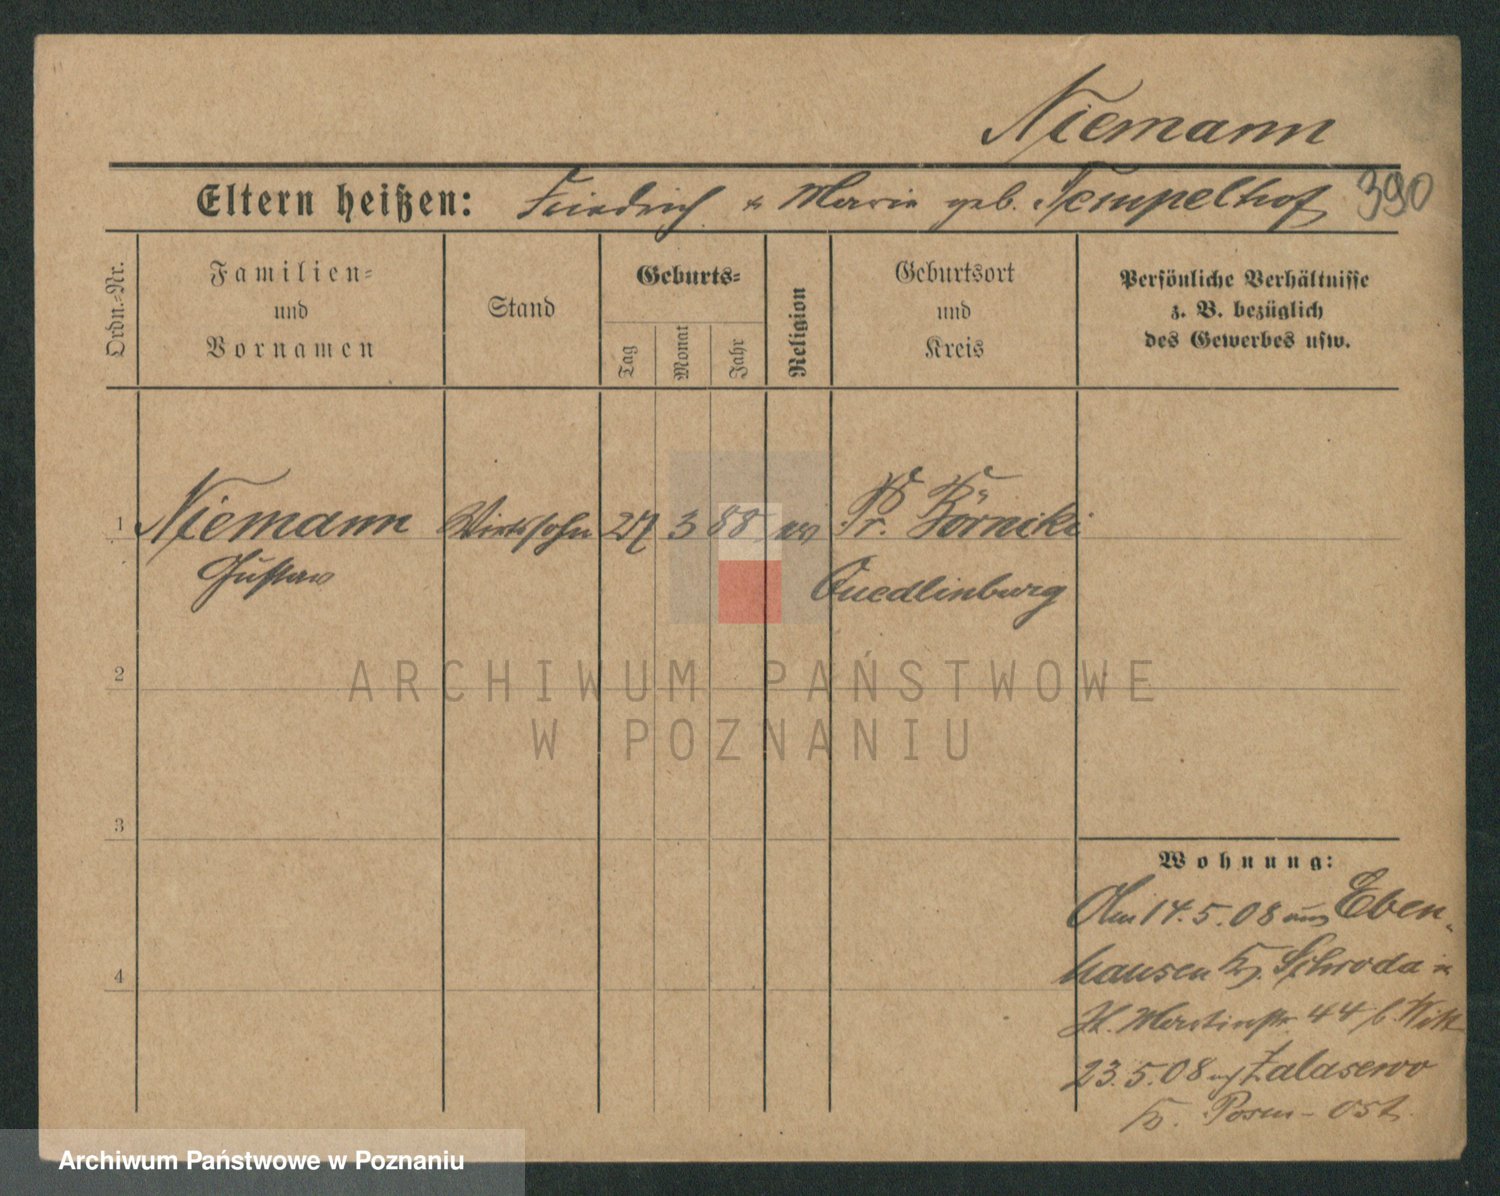 Niemann
Eltern heißen: Friedrich u Marie geb. Tempelhof 390
Ordn.-Nr.
Familien-
und
Vornamen
Stand
Geburts-
Tag
Monat
Jahr
Religion
Geburtsort
und
Kreis
Persönliche Verhältnisse
z. B. bezüglich
des Gewerbes usw.
1 Niemann Wirtssohn 27 3 88 ev Pr. Börnicki
Gustav
Quedlinburg
2
3
4
Wohnung:
Am 14.5.08 aus Eben-
hausen Kr. Schroda
St. Martinstr. 44 b. Witt
23.5.08 Zalasewo
Kr. Posen-Ost
ARCHIWUM PAŃSTWOWE
W POZNANIU
Archiwum Państwowe w Poznaniu